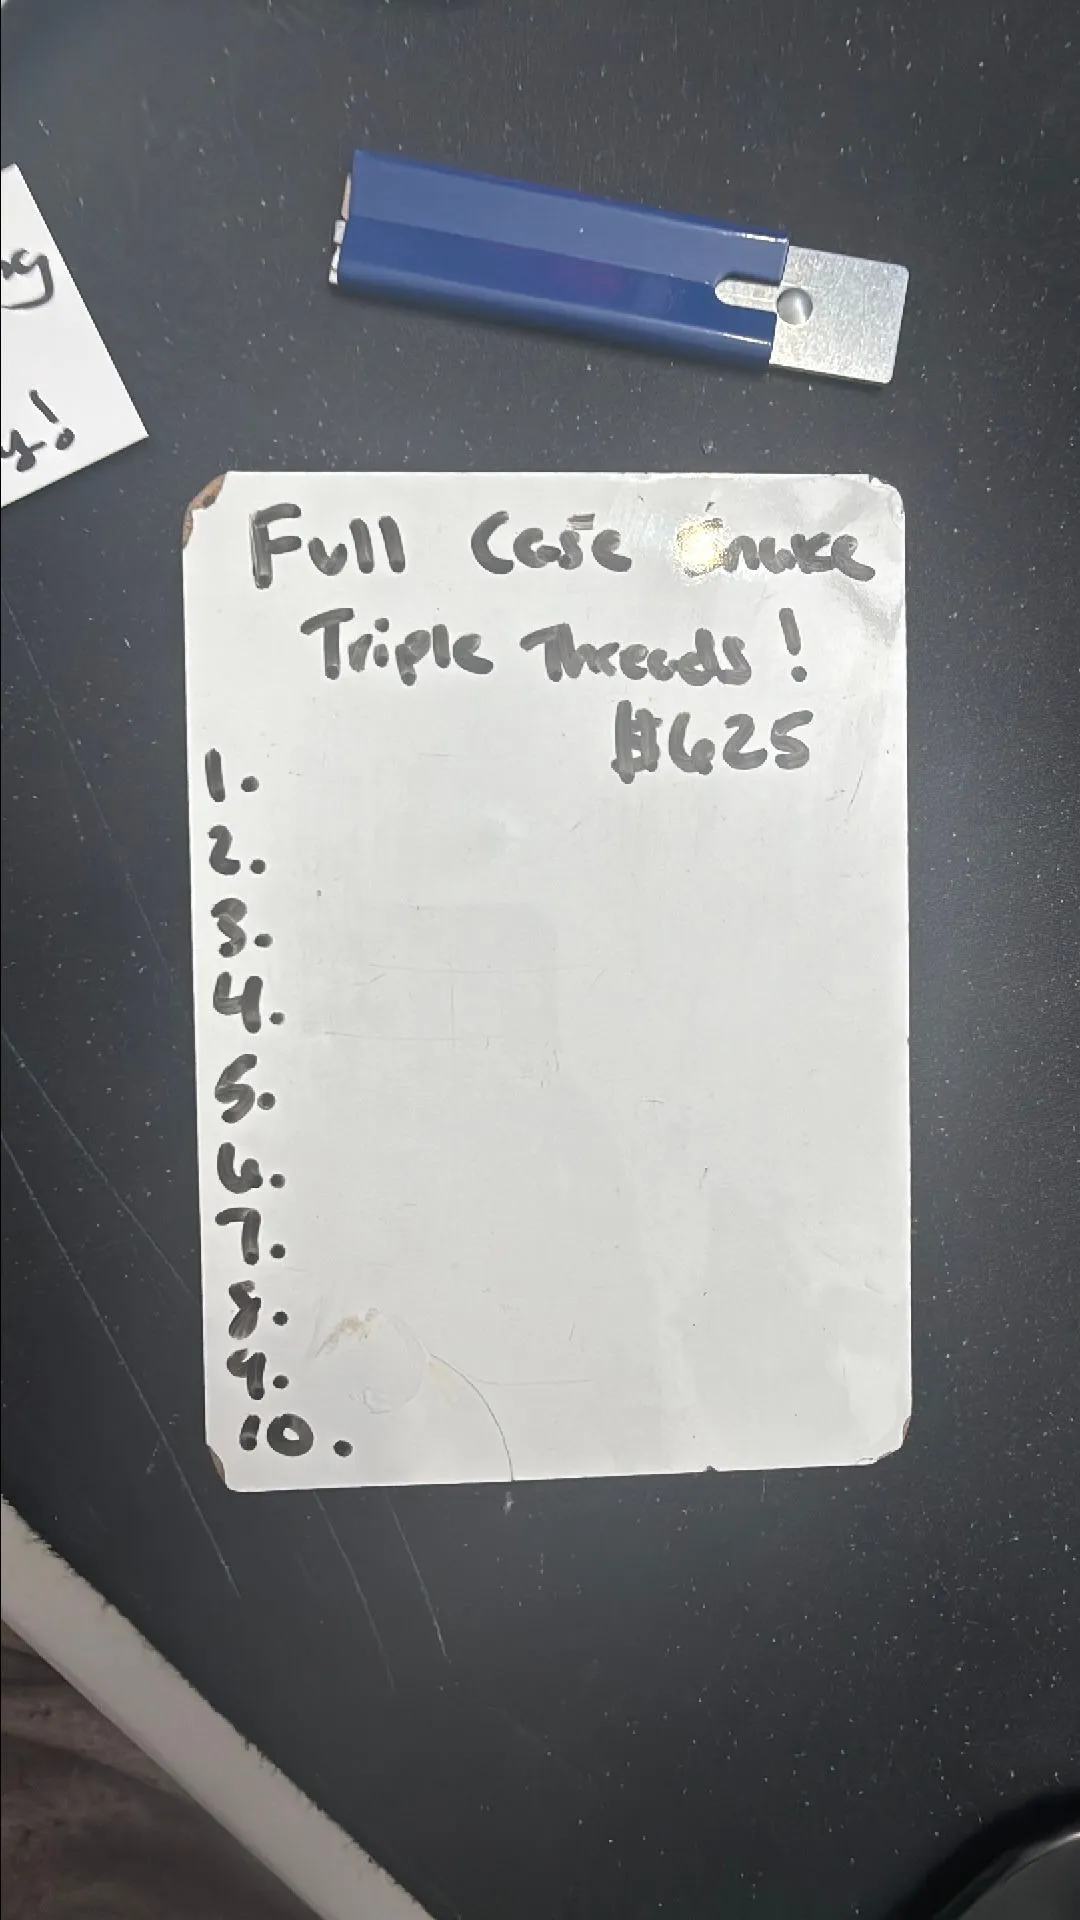 Full Case Snake
Triple Threads!
$625
1.
2.
3.
4.
5.
6.
7.
8.
9.
10.